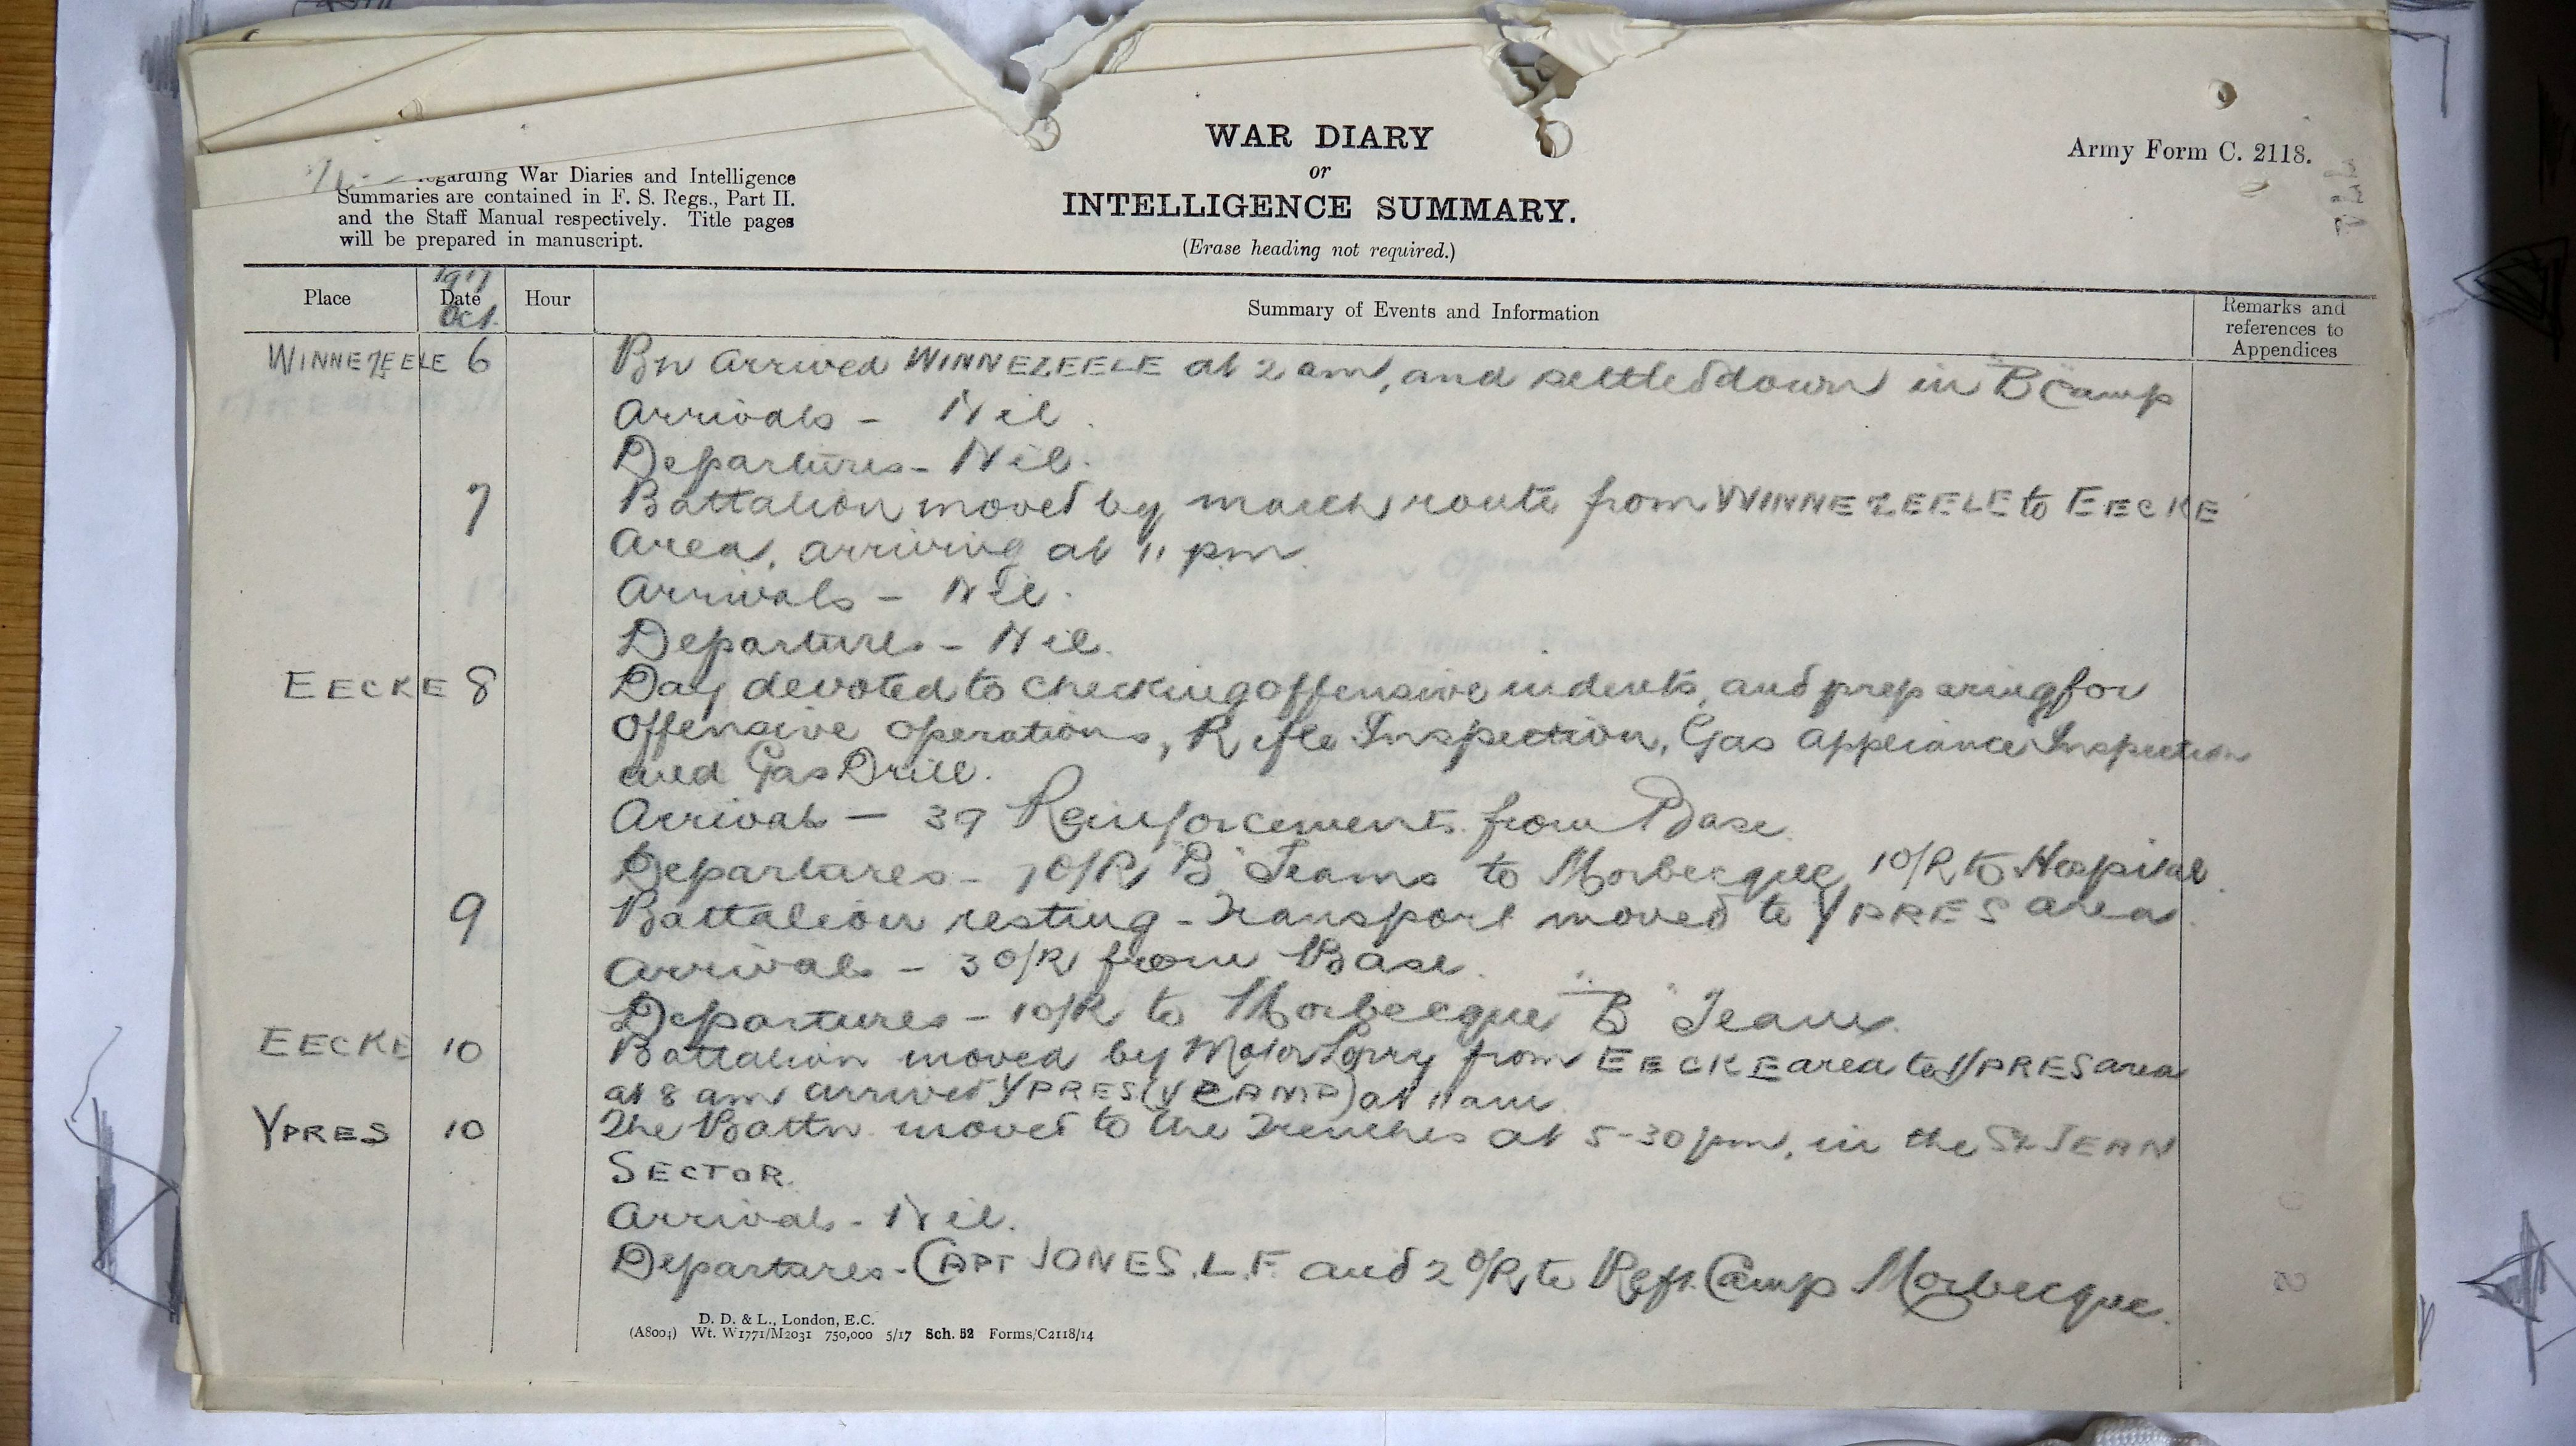 WAR DIARY
or
INTELLIGENCE SUMMARY.
(Erase heading not required.)
Army Form C. 2118.
regarding War Diaries and Intelligence
Summaries are contained in F. S. Regs., Part II.
and the Staff Manual respectively. Title pages
will be prepared in manuscript.
Place 1917 Date Oct. Hour Summary of Events and Information Remarks and references to Appendices
WINNEZEELE 6 Bn arrived WINNEZEELE at 2 am, and settled down in "B" Camp
Arrivals - Nil.
Departures - Nil.
7 Battalion moved by march route from WINNEZEELE to EECKE
Area, arriving at 11 pm.
Arrivals - Nil.
Departures - Nil.
EECKE 8 Day devoted to checking offensive indents, and preparing for
offensive operations, Rifle Inspection, Gas appliance Inspection
and Gas Drill.
Arrivals - 39 Reinforcements from Base.
Departures - 7 O/R "B" Teams to Morbecque, 1 O/R to Hospital.
9 Battalion resting - Transport moved to YPRES area.
Arrivals - 3 O/R from Base.
Departures - 1 O/R to Morbecque "B" Team.
EECKE 10 Battalion moved by Motor Lorry from EECKE area to YPRES area
at 8 am arrived YPRES (Y CAMP) at 11 am.
YPRES 10 The Battn. moved to the Trenches at 5-30 pm, in the St JEAN
SECTOR.
Arrivals - Nil.
Departures - CAPT JONES. L.F. and 2 O/R to Reft. Camp Morbecque.
D. D. & L., London, E.C.
(A8004) Wt. W1771/M2031 750,000 5/17 Sch. 52 Forms/C2118/14